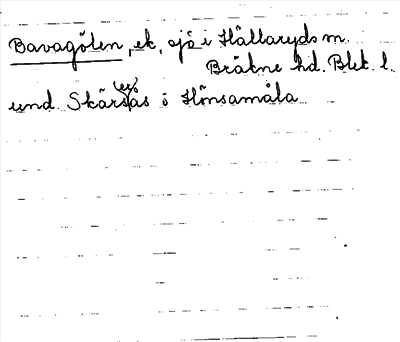 Bavagölen, ek, sjö i Hällaryds sn.
Bräkne hd. Blek. l.
und. Skärsnäs ö Hönsamåla